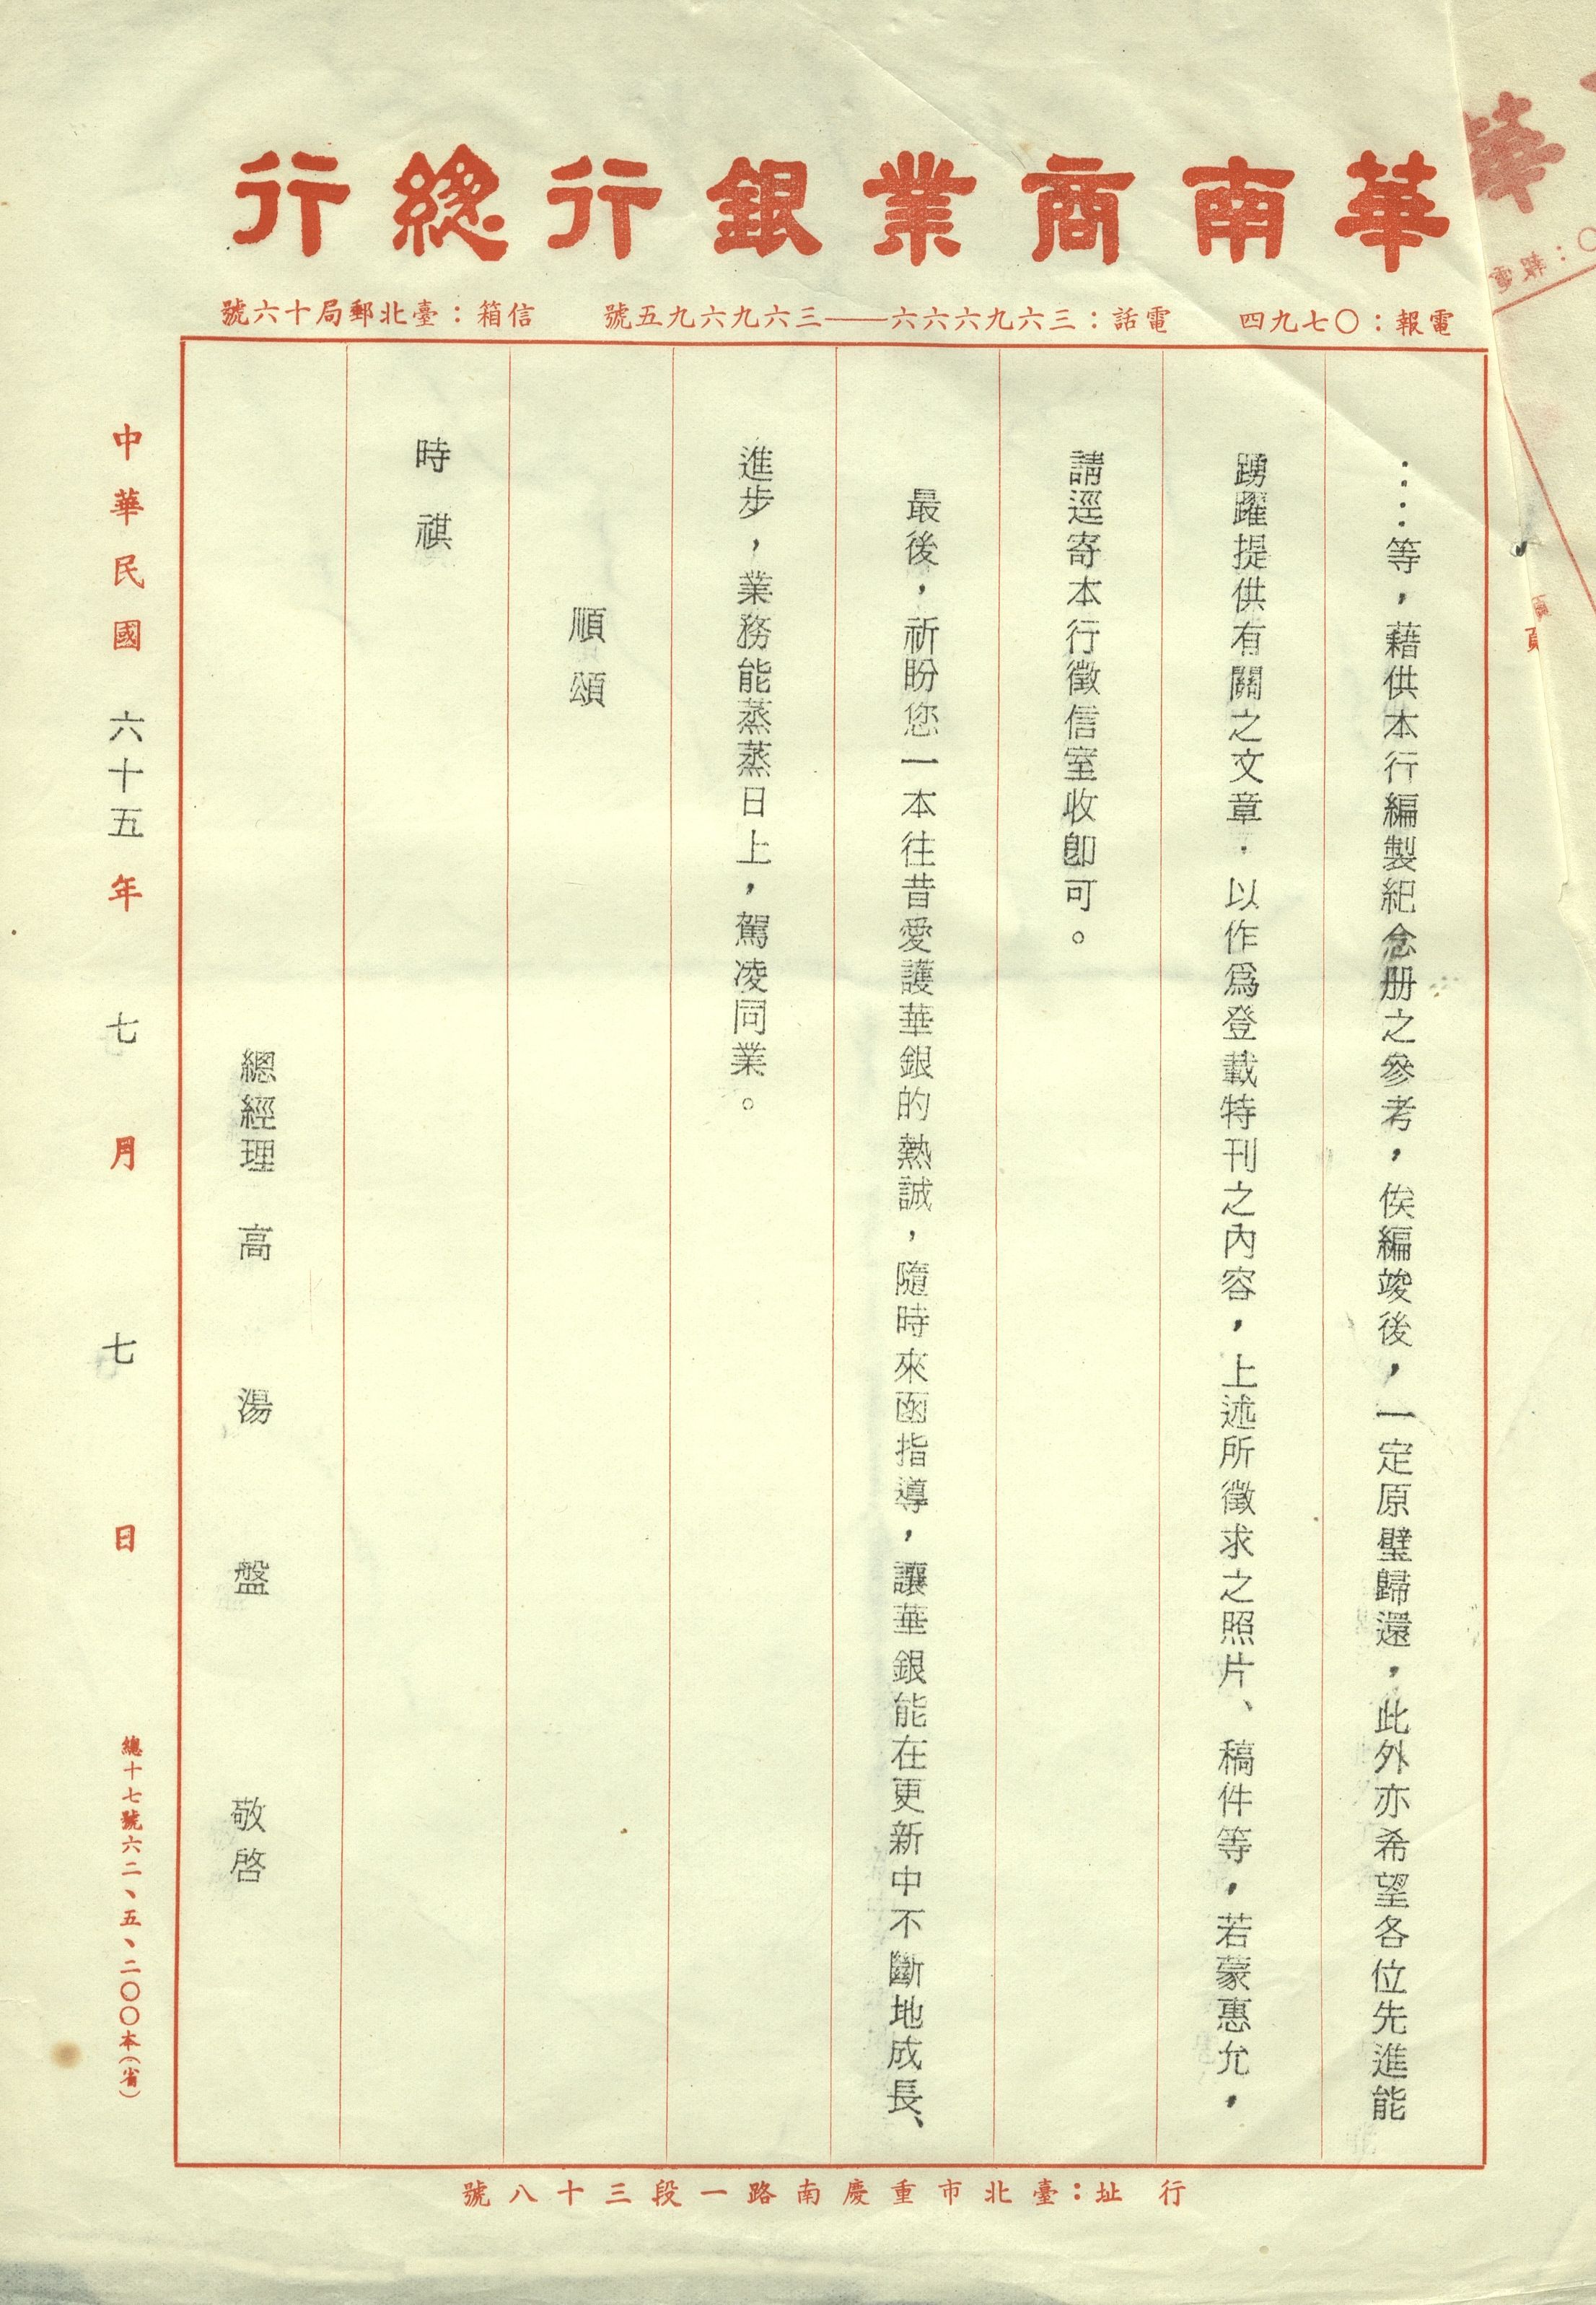 華南商業銀行總行
電報：〇七九四　電話：三六九六六六——三六九六九五號　信箱：臺北郵局十六號
：：等，藉供本行編製紀念册之參考，俟編竣後，一定原璧歸還，此外亦希望各位先進能
踴躍提供有關之文章．以作爲登載特刊之內容，上述所徵求之照片、稿件等，若蒙惠允，
請逕寄本行徵信室收卽可。
最後，祈盼您一本往昔愛護華銀的熱誠，隨時來函指導，讓華銀能在更新中不斷地成長、
進步，業務能蒸蒸日上，駕凌同業。
順頌
時祺
總經理 高湯盤 敬啓
中華民國六十五年七月七日
總十七號六二、五、二〇〇本（省）
行址：臺北市重慶南路一段三十八號
華
〇：報電